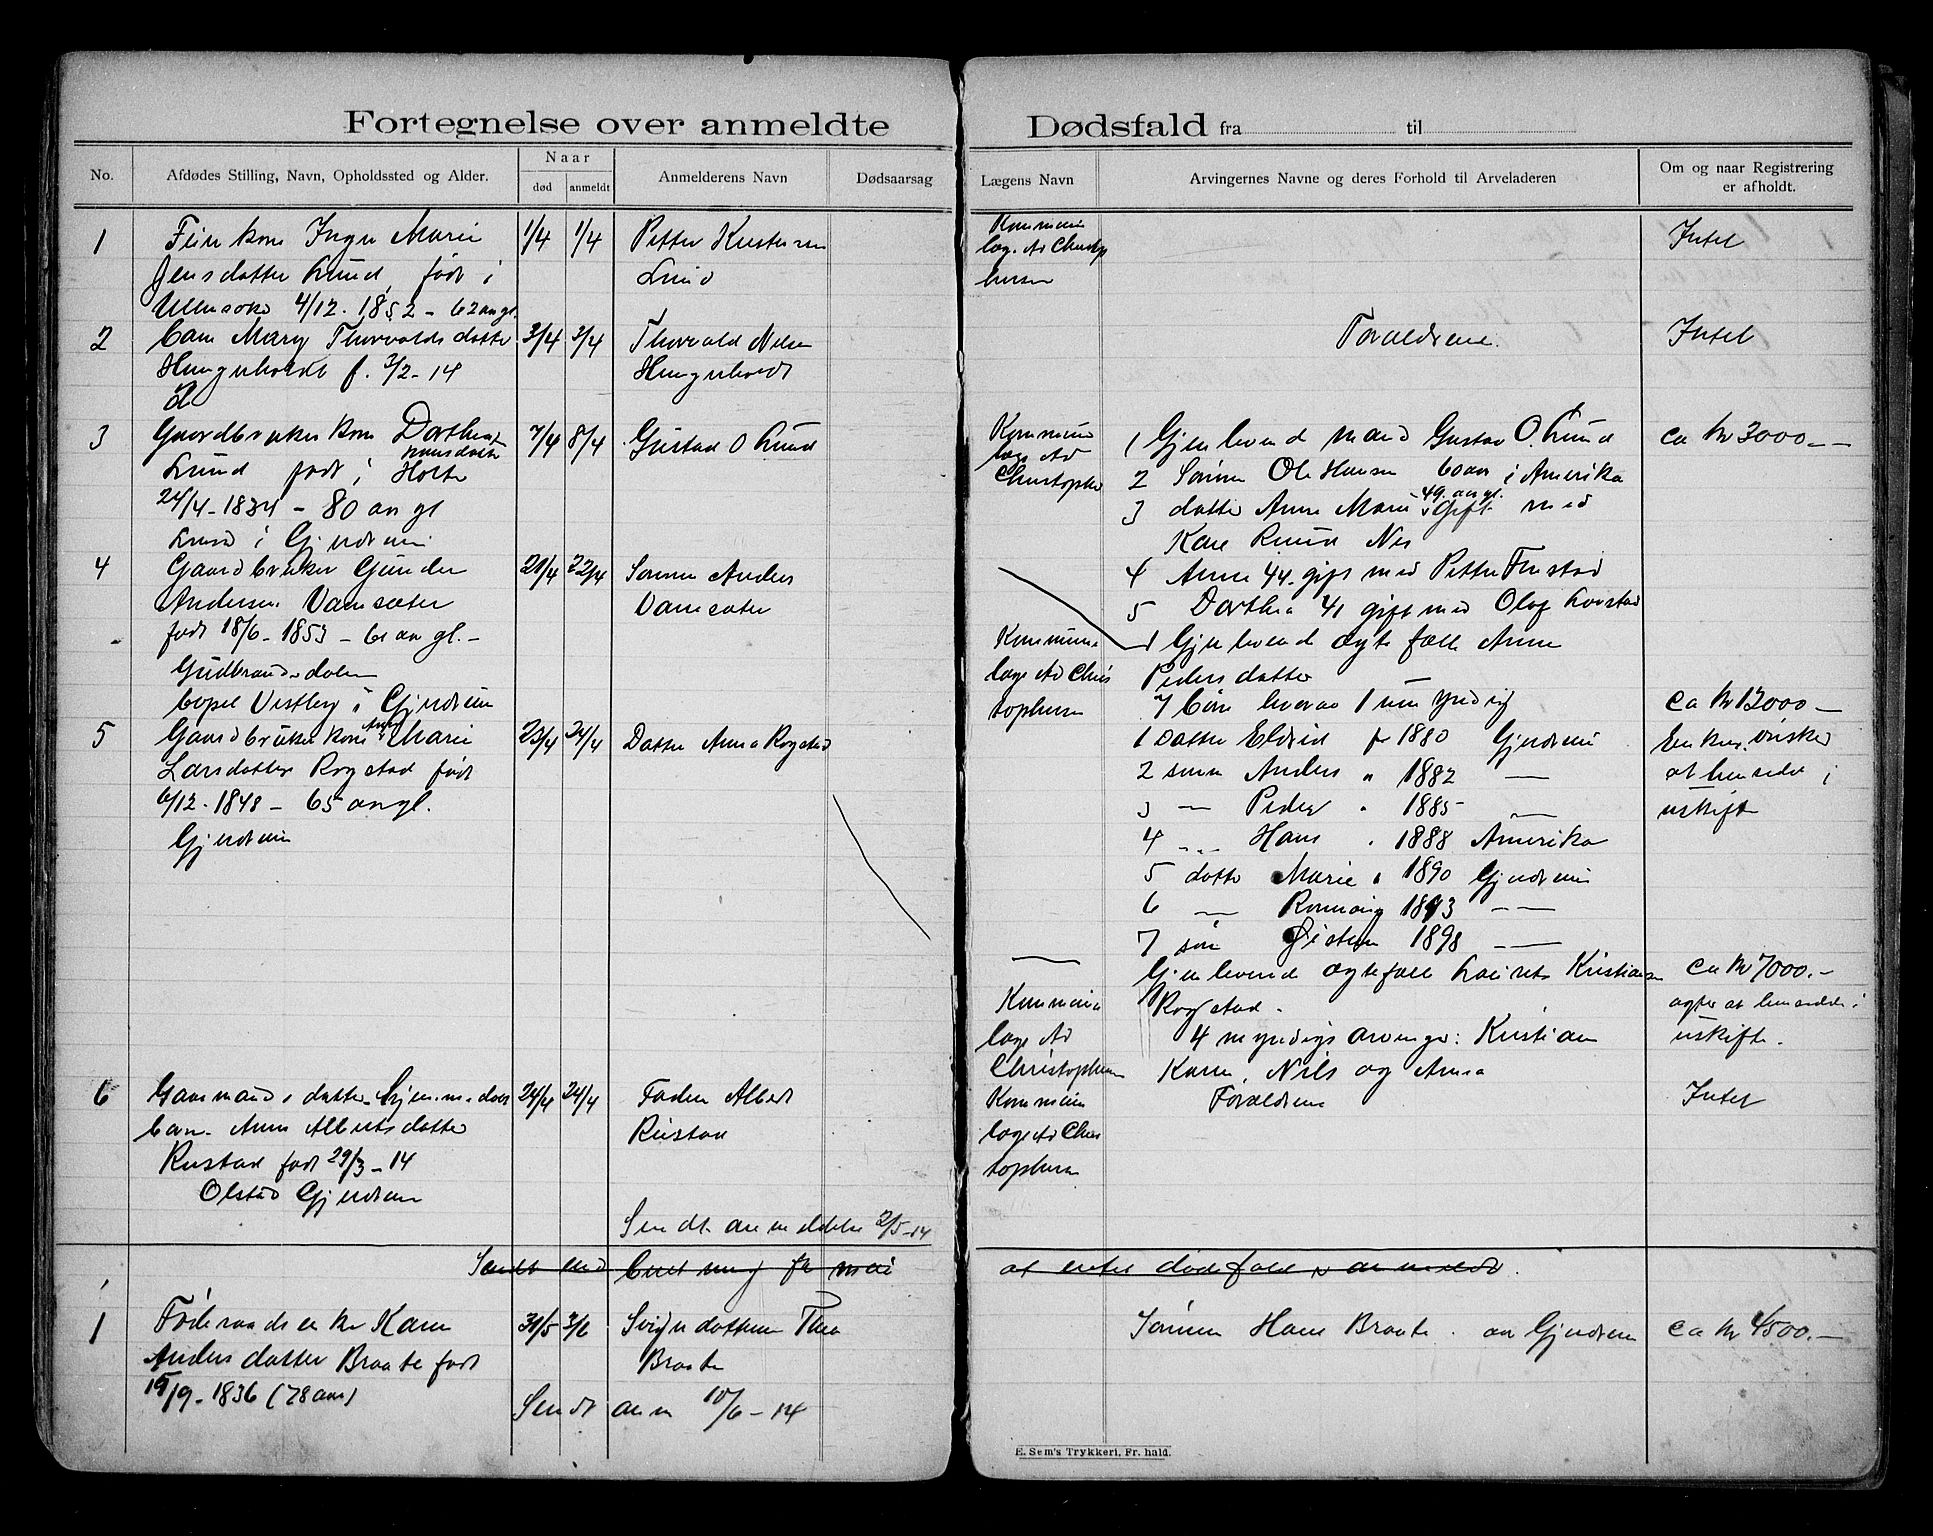 Fortegnelse over anmeldte
No.
Afdødes Stilling, Navn, Opholdssted og Alder.
Naar
død
anmeldt
Anmelderens Navn
Dødsaarsag
1
kone Inger Marie
1/4
1/4
Petter
Jensdatter Lund, født i
Lund
4/12. 1852 - 62 aar gl.
2
Barn Mary Thorvaldsdatter
3/4
3/4
Thorvald Nilsen
f. 3/2-14
3
Gaardbruker kone Dorthea
7/4
8/4
Gustad O Lund
Hansdatter
Lund født i Holter
24/4-1834 - 80 aar gl
Lund i Gjerdrum
4
Gaardbruker Gunder
21/4
22/4
Sønnen Anders
Andersen Vamsæter
Vamsæter
født 18/6-1853 - 61 aar gl.-
Gudbrandsdalen
bopel Vestby i Gjerdrum
5
Gaardbruker kone Anne Marie
23/4
24/4
Datter Anna Rogstad
Larsdatter Rogstad født
6/12. 1848 - 65 aar gl.
Gjerdrum
6
Gaarmands datter hjemmedøbt
24/4
24/4
Faderen Albert
barn. Anne Albertsdatter
Rustad
Rustad født 29/3-14
Olstad Gjerdrum
Sendt anmeldelse 2/5-14
Sendt for mai
1
Føderaadsenke Karen
31/5
3/6
Svigerdatteren Thea
Andersdatter Braate født
Braate
15/9-1836 (78 aar)
Sendt anm 10/6-14
Dødsfald fra til
Lægens Navn
Arvingernes Navne og deres Forhold til Arveladeren
Om og naar Registrering
er afholdt.
Kommune
læge Ad Christop
hersen
Intet
Forældrene.
Intet
Kommune
læge Ad
Christopher
1 Gjenlevend mand Gustav O. Lund
ca kr 3000.-
2 Sønnen Ole Hansen 60 aar i Amerika
3 datter Anne Marie 49 aar gl. Gift med
Nes
4 Anne 44. gift med Petter Finstad
5 Dorthea 41 gift med Olof
Kommune
læge Ad Chris
tophersen
1 Gjenlevend ægtefælle Anne
Pedersdatter
7 børn hvorav 1 umyndig
ca kr 12000-
1 Datter Eldrid f 1880 Gjerdrum
Enken ønsker
2 sønn Anders " 1882 —
at hensidde i
3 — Peder " 1885 —
uskifte
4 " Hans " 1888 Amerika
5 datter Marie " 1890 Gjerdrum
6 — Ronnaug 1893 —
7 søn Øistein 1898 —
Gjenlevend ægtefælle Laurits Kristiansen
ca kr 7000.-
Rogstad.
agter at hensidde i
4 myndige arvinger: Kristian
uskifte.
Karen, Nils og Anna
Kommune
læge Ad
Christophersen
Kommune
læge Ad Chris
tophersen
Forældrene
Intet
at intet dødsfald er anmeldt.
Sønnen Hans Braate. av Gjerdrum
ca kr 4500.-
E. Sem's Trykkeri, Fr. hald.